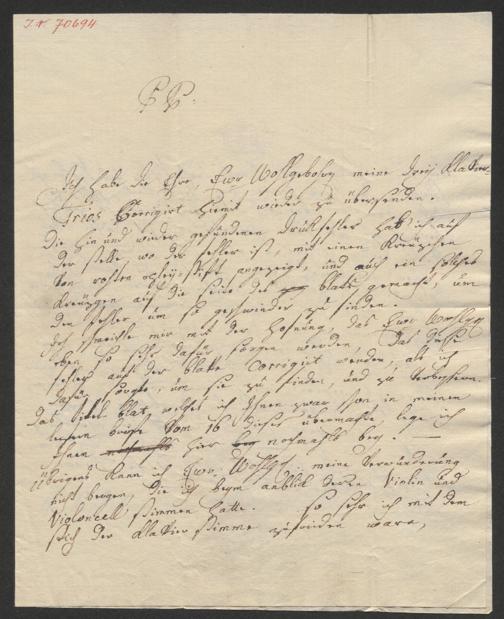 I.N. 70694
P P.
Ich habe die Ehre, Euer Wohlgebohrn meine drey Klavier
Trios Corrigirt hiemit wieder zu übersenden.
Die hin und wieder gefundenen Druckfehler hab ich auf
der Stelle, wo der Fehler ist, mit einen Kreuzchen
von rothen angezeigt, und auch ein solches
Kreuzgen auf die Seite des blats gemacht, um
den Fehler um so geschwinder zu finden.
Ich schmeichle mir mit der Hofnung, das Euer Wohlgb
eben so sehr dafür sorgen werden, das diese
fehlers auf der blatte Corrigirt werden, als ich
dafür sorgte, um sie zu finden, und zu verbessern.
Das Titel blat, welches ich Ihnen zwar schon in meinen
leztern briefe vom 16 dieses übermachte, lege ich
Ihnen hier nochmahls bey. —
übrigens kann ich Euer Wohlgb, meine Verwunderung
nicht bergen, die ich beym anblick deren Violin und
Violoncell stimmen hatte. so sehr ich mit dem
stich der Klavier stimme zufrieden ware,